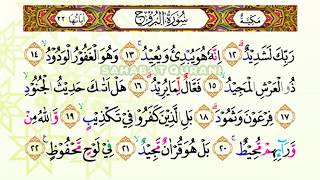 مكية سورة البروج اياتها ٢٢
رَبِّكَ لَشَدِيْدٌ ١٢ اِنَّهٗ هُوَ يُبْدِئُ وَيُعِيْدُ ١٣ وَهُوَ الْغَفُوْرُ الْوَدُوْدُ ١٤
SAHABAT QURANI
ذُو الْعَرْشِ الْمَجِيْدُ ١٥ فَعَّالٌ لِّمَا يُرِيْدُ ١٦ هَلْ اَتٰىكَ حَدِيْثُ الْجُنُوْدِ ١٧
فِرْعَوْنَ وَثَمُوْدَ ١٨ بَلِ الَّذِيْنَ كَفَرُوْا فِيْ تَكْذِيْبٍ ١٩ وَّاللّٰهُ مِنْ
وَّرَاۤىِٕهِمْ مُّحِيْطٌ ٢٠ بَلْ هُوَ قُرْاٰنٌ مَّجِيْدٌ ٢١ فِيْ لَوْحٍ مَّحْفُوْظٍ ٢٢